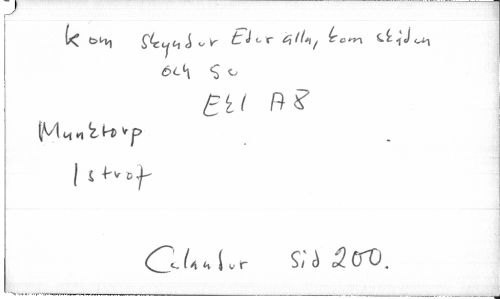 kom skyndur Eder alla, kom skåden
och se
Ekl A8
Munktorp
1 strof
Calandur Sid 200.